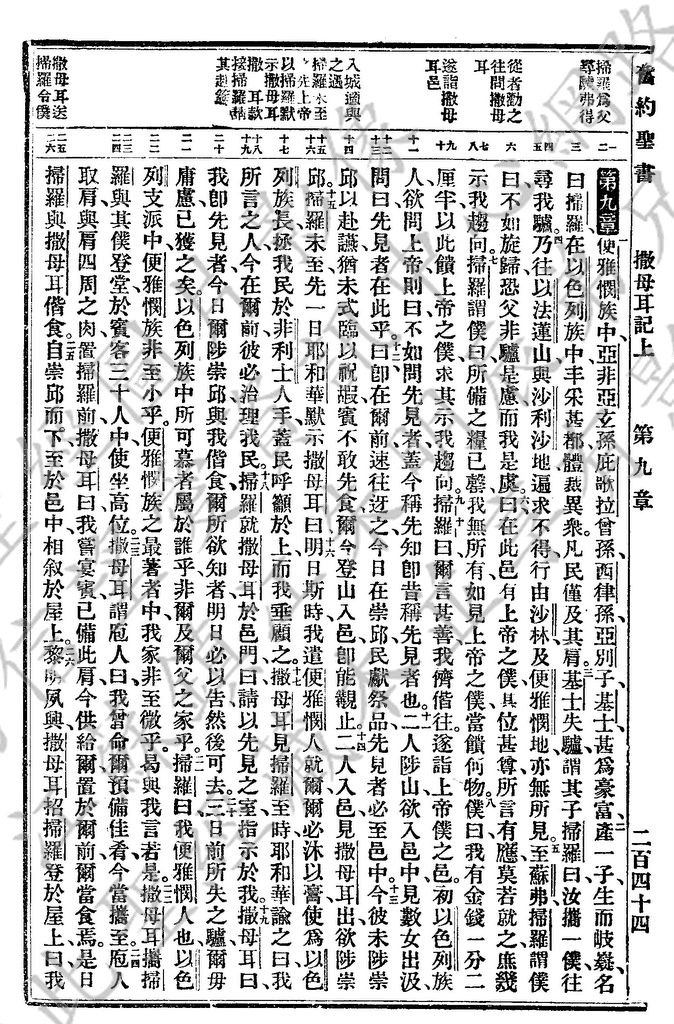 舊約聖書 撒母耳記上 第九章 二百四十四
掃羅爲父
尋驢弗得
從者勸之
往問撒母
耳
遂詣撒母
耳邑
入城適與
之遇
掃羅未至
之先上帝
以掃羅默
示撒母耳
撒母耳款
接掃羅
撒母耳送
掃羅令僕
第九章 便雅憫族中亞非亞玄孫庇歌拉曾孫西律孫亞別子基士甚爲豪富產一子生而岐嶷名
曰掃羅在以色列族中丰采甚都體裁異衆凡民僅及其肩基士失驢謂其子掃羅曰汝攜一僕往
尋我驢乃往以法蓮山與沙利沙地遍求不得行由沙林及便雅憫地亦無所見至蘇弗掃羅謂僕
曰不如旋歸恐父非驢是慮而我是虞曰在此邑有上帝之僕具位甚尊所言有應莫若就之庶幾
示我趨向掃羅謂僕曰所備之糧已罄我無所有如見上帝之僕當饋何物僕曰我有金錢一分二
厘半以此饋上帝之僕求其示我趨向掃羅曰爾言甚善我儕偕往遂詣上帝僕之邑初以色列族
人欲問上帝則曰不如問先見者蓋今稱先知卽昔稱先見者也二人陟山欲入邑中見數女出汲
問曰先見者在此乎曰卽在爾前速往迓之今日在崇邱民獻祭品先見者必至邑中今彼未陟崇
邱以赴讌猶未式臨以祝嘏賓不敢先食爾今登山入邑卽能觀止二人入邑見撒母耳出欲陟崇
邱掃羅未至先一日耶和華默示撒母耳曰明日斯時我遣便雅憫人就爾爾必沐以膏使爲以色
列族長拯我民於非利士人手蓋民呼籲於上而我垂顧之撒母耳見掃羅至時耶和華諭之曰我
所言之人今在爾前彼必治理我民掃羅就撒母耳於邑門曰請以先見之室指示於我撒母耳曰
我卽先見者今日爾陟崇邱與我偕食爾所欲知者明日必以告然後可去三日前所失之驢爾毋
庸慮已獲之矣以色列族中所可慕者屬於誰乎非爾及爾父之家乎掃羅曰我便雅憫人也以色
列支派中便雅憫族非至小乎便雅憫族之最著者中我家非至微乎曷與我言若是撒母耳攜掃
羅與其僕登堂於賓客三十人中使坐高位撒母耳謂庖人曰我曾命爾預備佳肴今當攜至庖人
取肩與肩四周之肉置掃羅前撒母耳曰我嘗宴賓已備此肩今供給爾置於爾前爾當食焉是日
掃羅與撒母耳偕食自崇邱而下至於邑中相叙於屋上黎明夙興撒母耳招掃羅登於屋上曰我